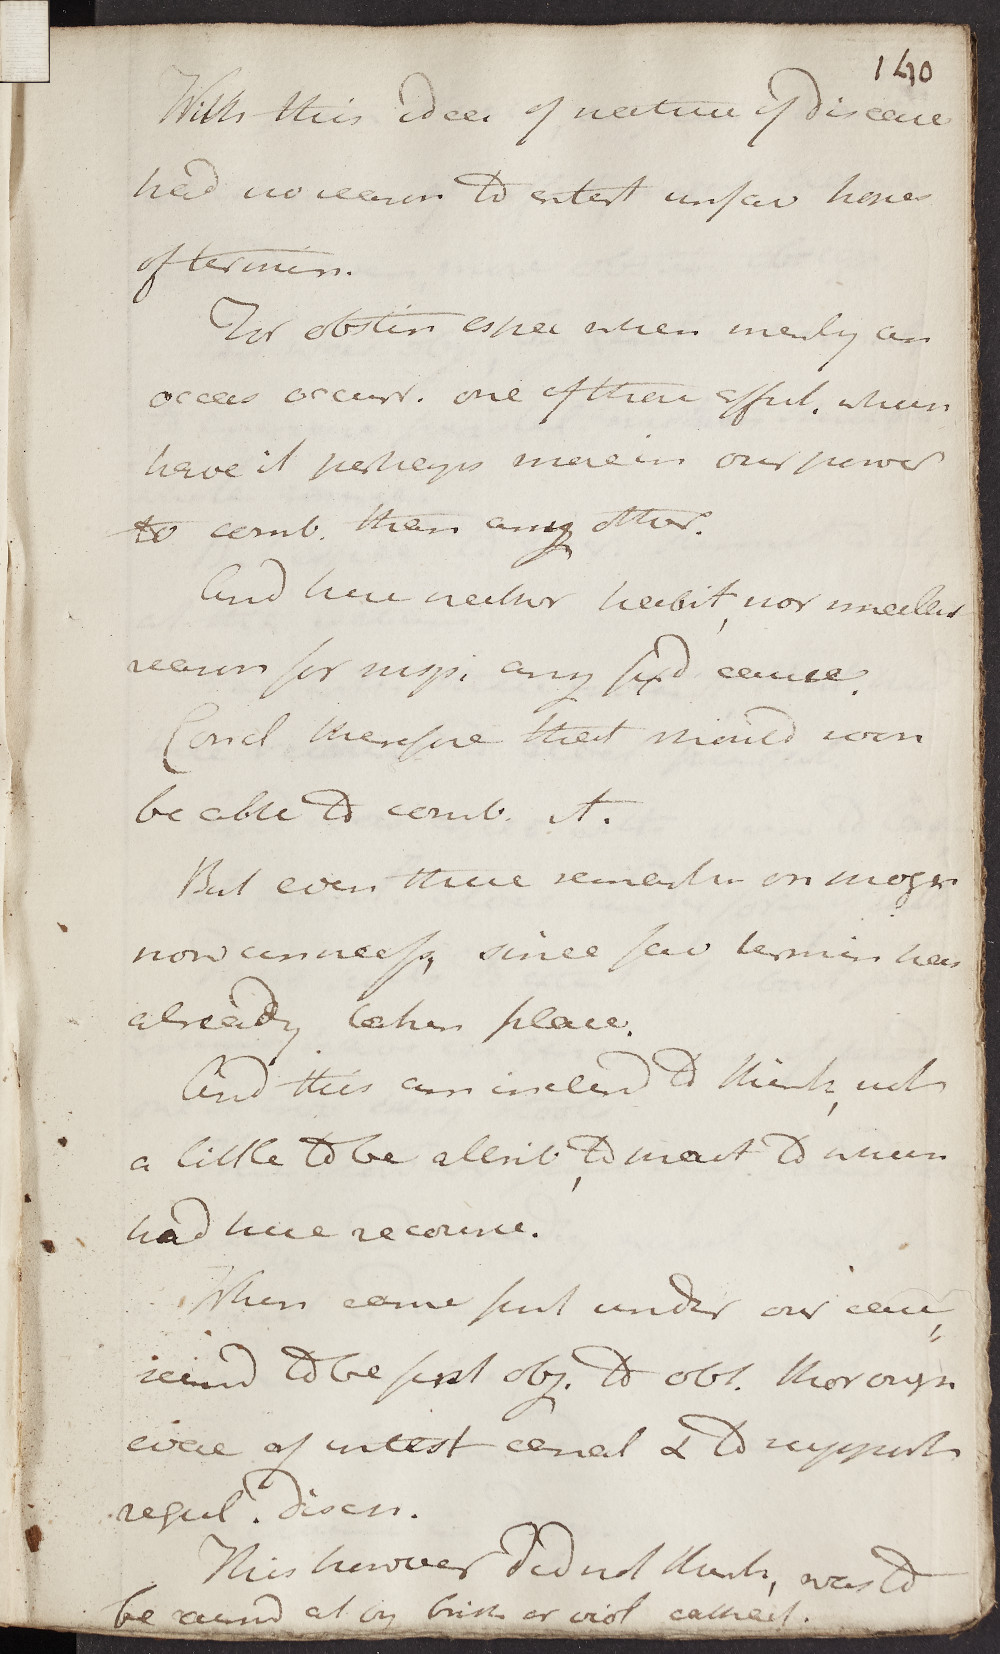 140
With this idea of nature of disease
had no reason to entert unfav hopes
of termin.
For obstin espec when merely an
occas occurr. one of those affect. when
have it perhaps more in our power
to comb. than any other.
And here neither habit, nor
reason for susp. any fixd cause.
Concl therefore that should soon
be able to comb. it.
But even these remarks on progn
now unnecessy, since fav termin has
already taken place.
And this am inclind to think, not
a little to be attrib, to pract to when
had here recourse.
When came first under our care,
seemd to be first obj. to obt. thorough
evac of intest canal & to support
regul. disch.
This however did not think, was to
be aimd at by brisk or viol cathart.